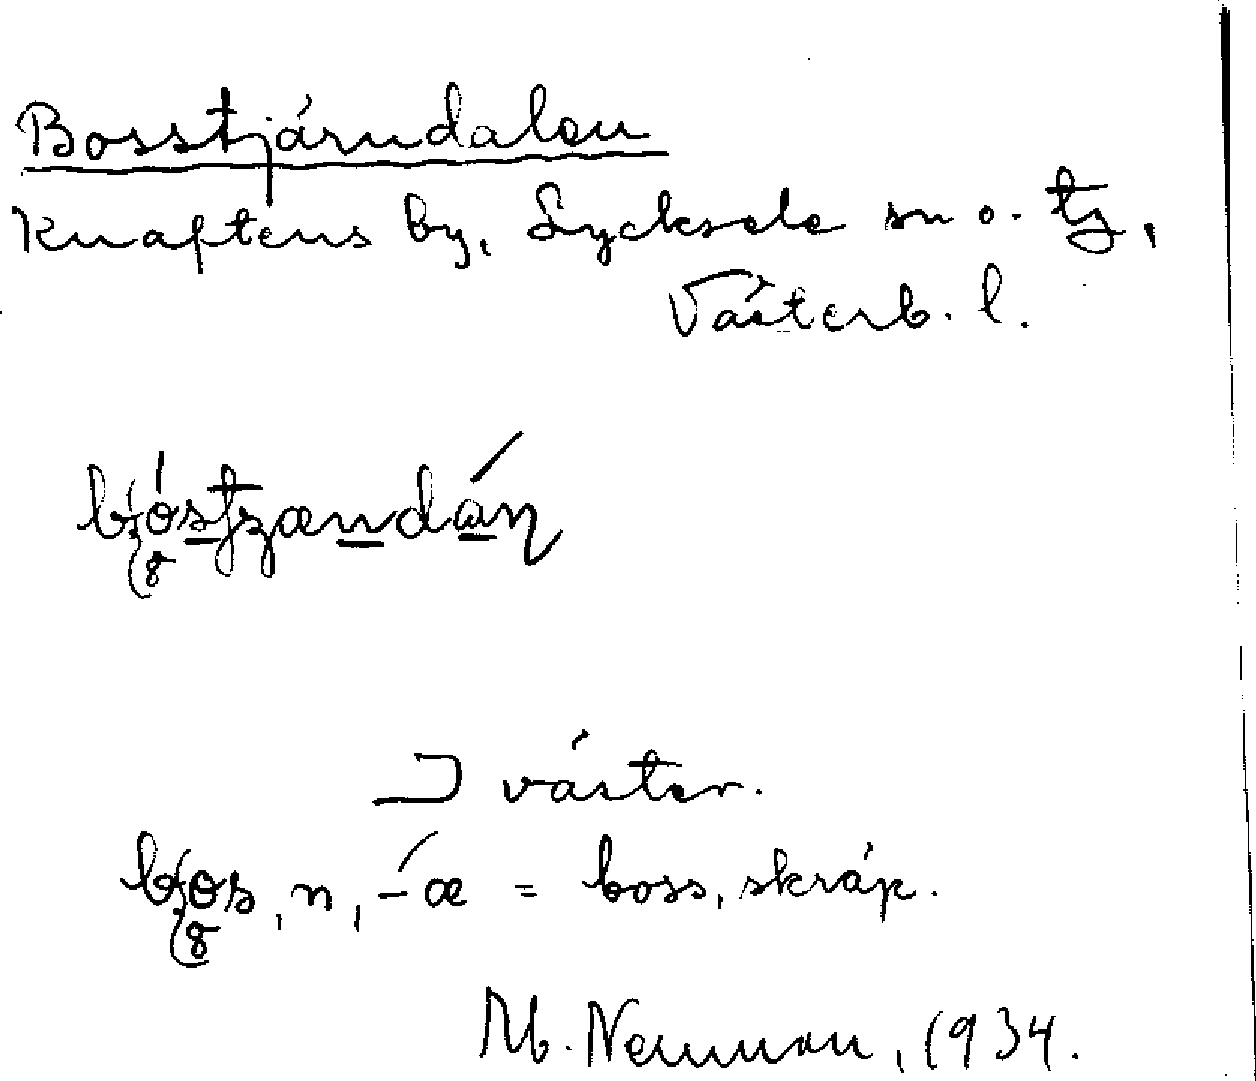 Bosstjärndalen
Knaftens by, Lycksele sn o. tg,
Västerb. l.
väster.
bos, n, -æ = boss, skräp.
M. Neuman, 1934.